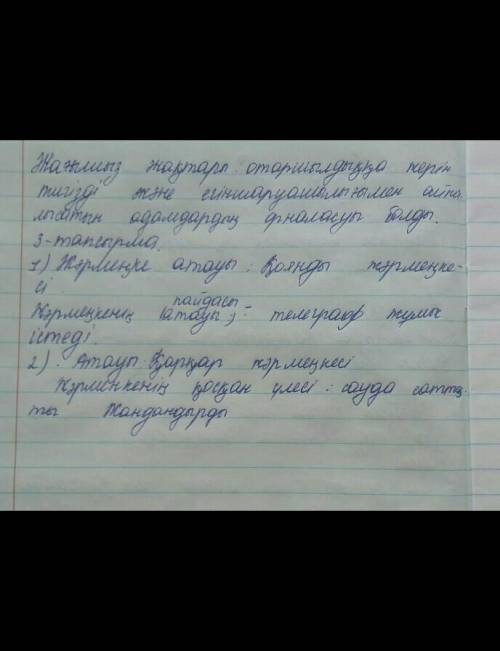 Жағымыз жақтары: отаршылдыққа керін
тигізді және егіншаруашылығымен айна
лысатын адамдардың орналасуы болды.
3-тапсырма.
1) Жәрмеңке атауы: Қоянды жәрмеңке-
сі
пайдасы
Жәрмеңкенің (атауы:) - телеграф жұмыс
істеді.
2). Атауы: Қарқар жәрмеңкесі
Жәрминкенің қосқан үлесі: сауда саттық-
ты жандандырды